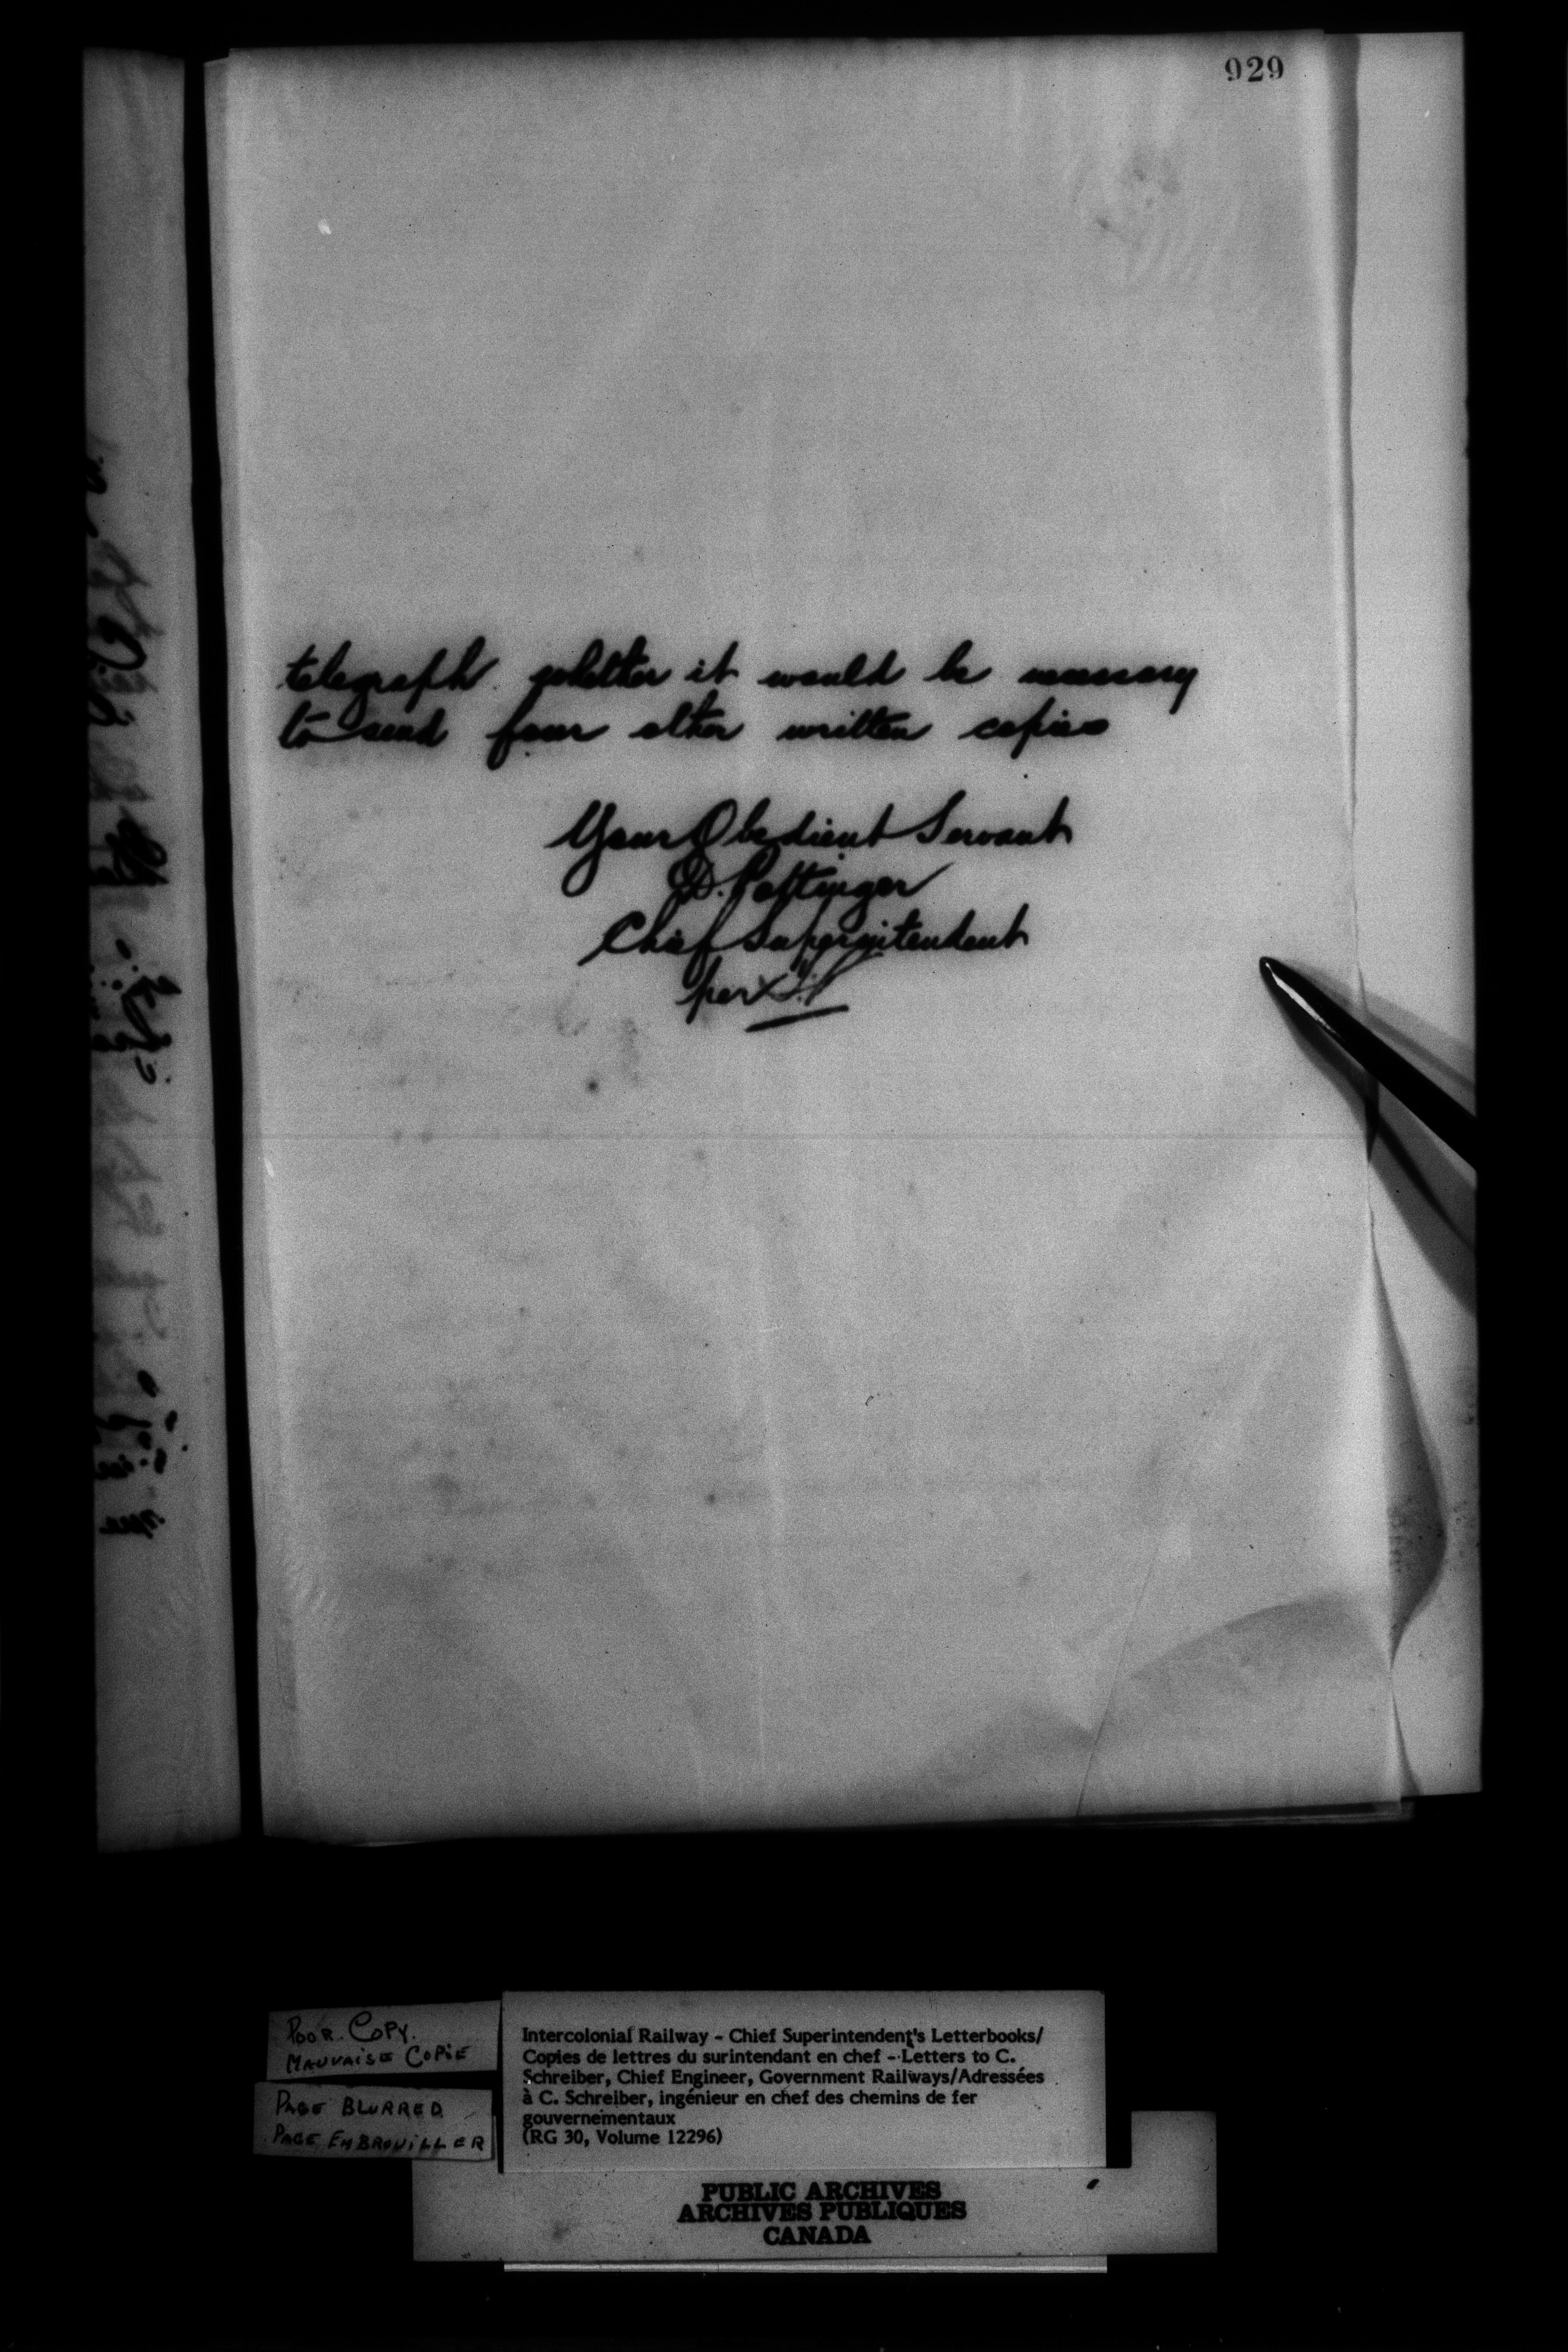 929
telegraph whether it would be necessary
to send four other written copies
Your Obedient Servant
D. Pottinger
Chief Superintendent
per
POOR COPY.
MAUVAISE COPIE
PAGE BLURRED
PAGE EMBROUILLER
Intercolonial Railway - Chief Superintendent's Letterbooks/
Copies de lettres du surintendant en chef - Letters to C.
Schreiber, Chief Engineer, Government Railways/Adressées
à C. Schreiber, ingénieur en chef des chemins de fer
gouvernementaux
(RG 30, Volume 12296)
PUBLIC ARCHIVES
ARCHIVES PUBLIQUES
CANADA